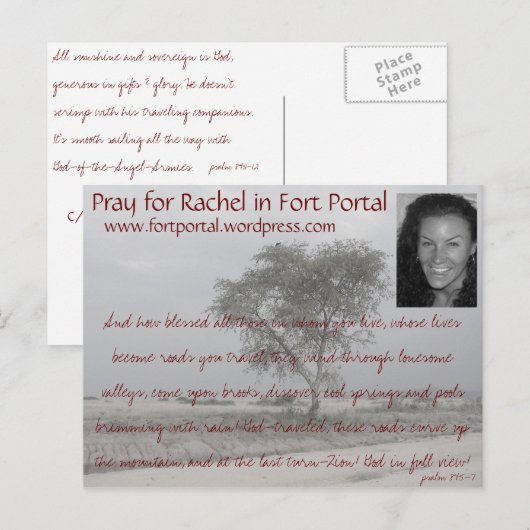 All sunshine and sovereign is God,
generous in gifts & glory. He doesn't
scrimp with his traveling companions.
It's smooth sailing all the way with
God-of-the-Angel-Armies. psalm 84:5-12
Place
Stamp
Here
c/
Pray for Rachel in Fort Portal
www.fortportal.wordpress.com
And how blessed all those in whom you live, whose lives
become roads you travel; they wind through lonesome
valleys, come upon brooks, discover cool springs and pools
brimming with rain! God-traveled, these roads curve up
the mountain, and at the last turn-Zion! God in full view!
psalm 84:5-7